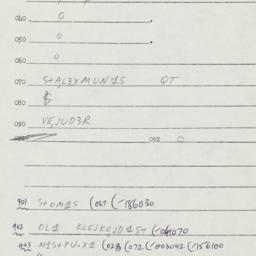 040 0
050 0
060 0
070 STAL3XMUN1S QT
080
090 VEJUD3R
092 0
901 STOM1S (067 (-186030
902 OL1 KLEJKEJD1ST (-061070
903 M1STPU.X1 (028 (072 (-003042 (-156100